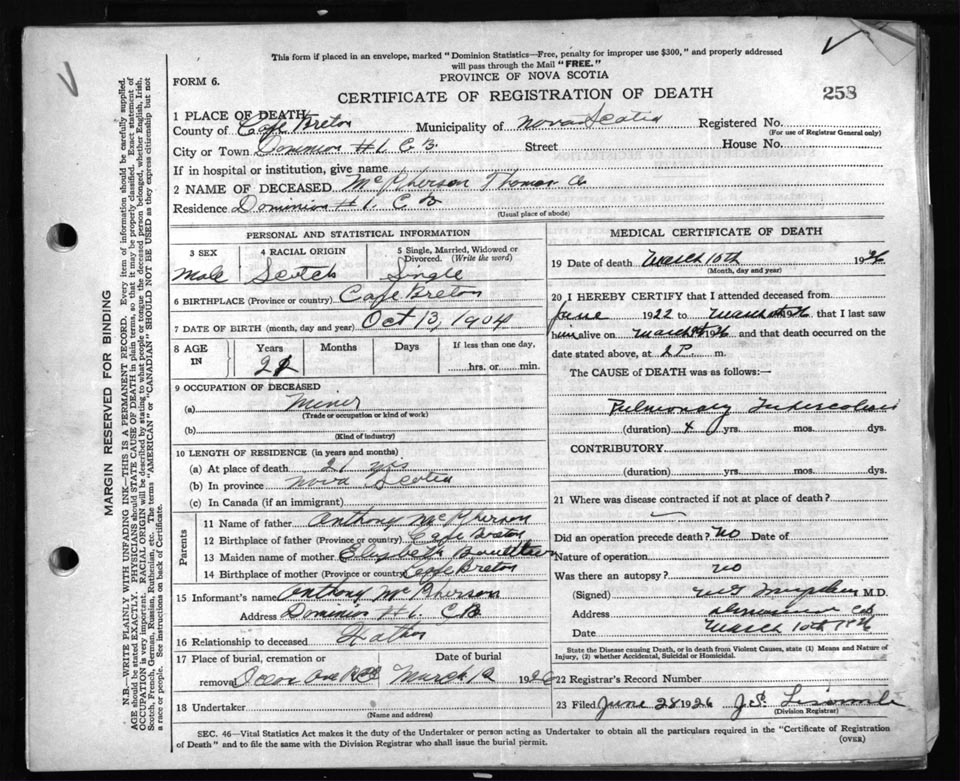 This form if placed in an envelope, marked "Dominion Statistics—Free, penalty for improper use $300," and properly addressed
will pass through the Mail "FREE."
FORM 6.
PROVINCE OF NOVA SCOTIA
CERTIFICATE OF REGISTRATION OF DEATH
253
1 PLACE OF DEATH
County of Cape Breton Municipality of Nova Scotia Registered No.
(For use of Registrar General only)
City or Town Dominion #1 C B. Street House No.
If in hospital or institution, give name
2 NAME OF DECEASED McPherson Thomas
Residence Dominion #1. C B
(Usual place of abode)
PERSONAL AND STATISTICAL INFORMATION
3 SEX 4 RACIAL ORIGIN 5 Single, Married, Widowed or Divorced. (Write the word)
Male Scotch Single
6 BIRTHPLACE (Province or country) Cape Breton
7 DATE OF BIRTH (month, day and year) Oct 13, 1904
8 AGE IN Years Months Days If less than one day,
21 hrs. or min.
9 OCCUPATION OF DECEASED
(a) Miner
(Trade or occupation or kind of work)
(b)
(Kind of industry)
10 LENGTH OF RESIDENCE (in years and months)
(a) At place of death 21 yrs
(b) In province Nova Scotia
(c) In Canada (if an immigrant)
Parents
11 Name of father Anthony McPherson
12 Birthplace of father (Province or country) Cape Breton
13 Maiden name of mother Elizabeth
14 Birthplace of mother (Province or country) Cape Breton
15 Informant's name Anthony McPherson
Address Dominion #1. CB
16 Relationship to deceased Father
17 Place of burial, cremation or removal Date of burial
March 12 1926
18 Undertaker
(Name and address)
MEDICAL CERTIFICATE OF DEATH
19 Date of death March 10th 1926
(Month, day and year)
20 I HEREBY CERTIFY that I attended deceased from
June 1922 to March 1926 that I last saw
him alive on March 1926 and that death occurred on
date stated above, at 2 P. m.
The CAUSE of DEATH was as follows:—
Pulmonary Tuberculosis
(duration) 4 yrs. mos. dys.
CONTRIBUTORY
(duration) yrs. mos. dys.
21 Where was disease contracted if not at place of death?
Did an operation precede death? No Date of
Nature of operation
Was there an autopsy? No
(Signed) M.D.
Address Dominion CB
Date March 10th 1926
State the Disease causing Death, or in death from Violent Causes, state (1) Means and Nature of
Injury, (2) whether Accidental, Suicidal or Homicidal.
22 Registrar's Record Number
23 Filed June 28 1926
(Division Registrar)
SEC. 46—Vital Statistics Act makes it the duty of the Undertaker or person acting as Undertaker to obtain all the particulars required in the "Certificate of Registration
of Death" and to file the same with the Division Registrar who shall issue the burial permit.
(OVER)
MARGIN RESERVED FOR BINDING
N.B.—WRITE PLAINLY WITH UNFADING INK—THIS IS A PERMANENT RECORD. Every item of information should be carefully supplied.
AGE should be stated EXACTLY. PHYSICIANS should STATE CAUSE OF DEATH in plain terms, so that it may be properly classified. Exact statement of
OCCUPATION is very important. RACIAL ORIGIN will be described by stating to what people or tongue the deceased person belonged, whether English, Irish,
Scotch, French, German, Russian, Ruthenian, etc. The terms "AMERICAN" or "CANADIAN" SHOULD NOT BE USED as they express citizenship but not
a race or people. See instructions on back of Certificate.